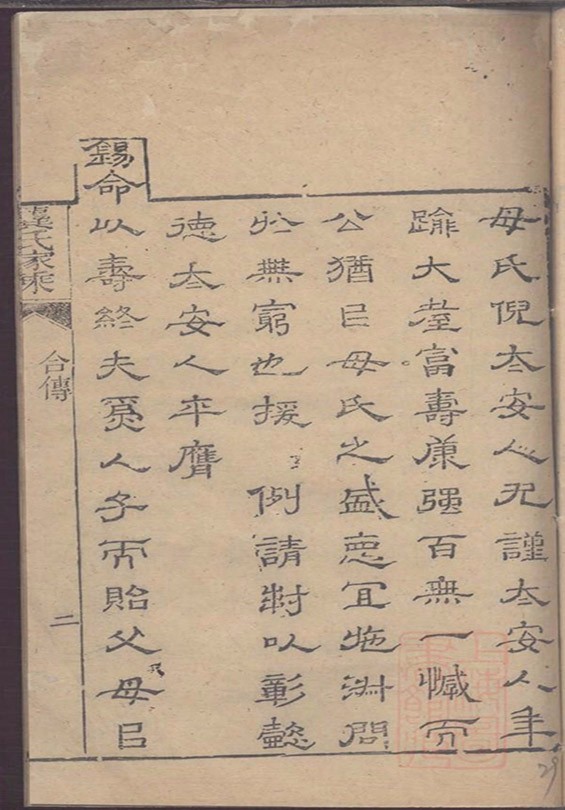 母氏倪太安人尤謹太安人年
踰大耋富壽康强百無一憾而
公猶㠯母氏之盛悳宜施淵問
於無窮也援 例請封以彰懿
德太安人卒膺
錫命以壽終夫爲人子而貽父母㠯
龔氏家乘
合傳
二
29